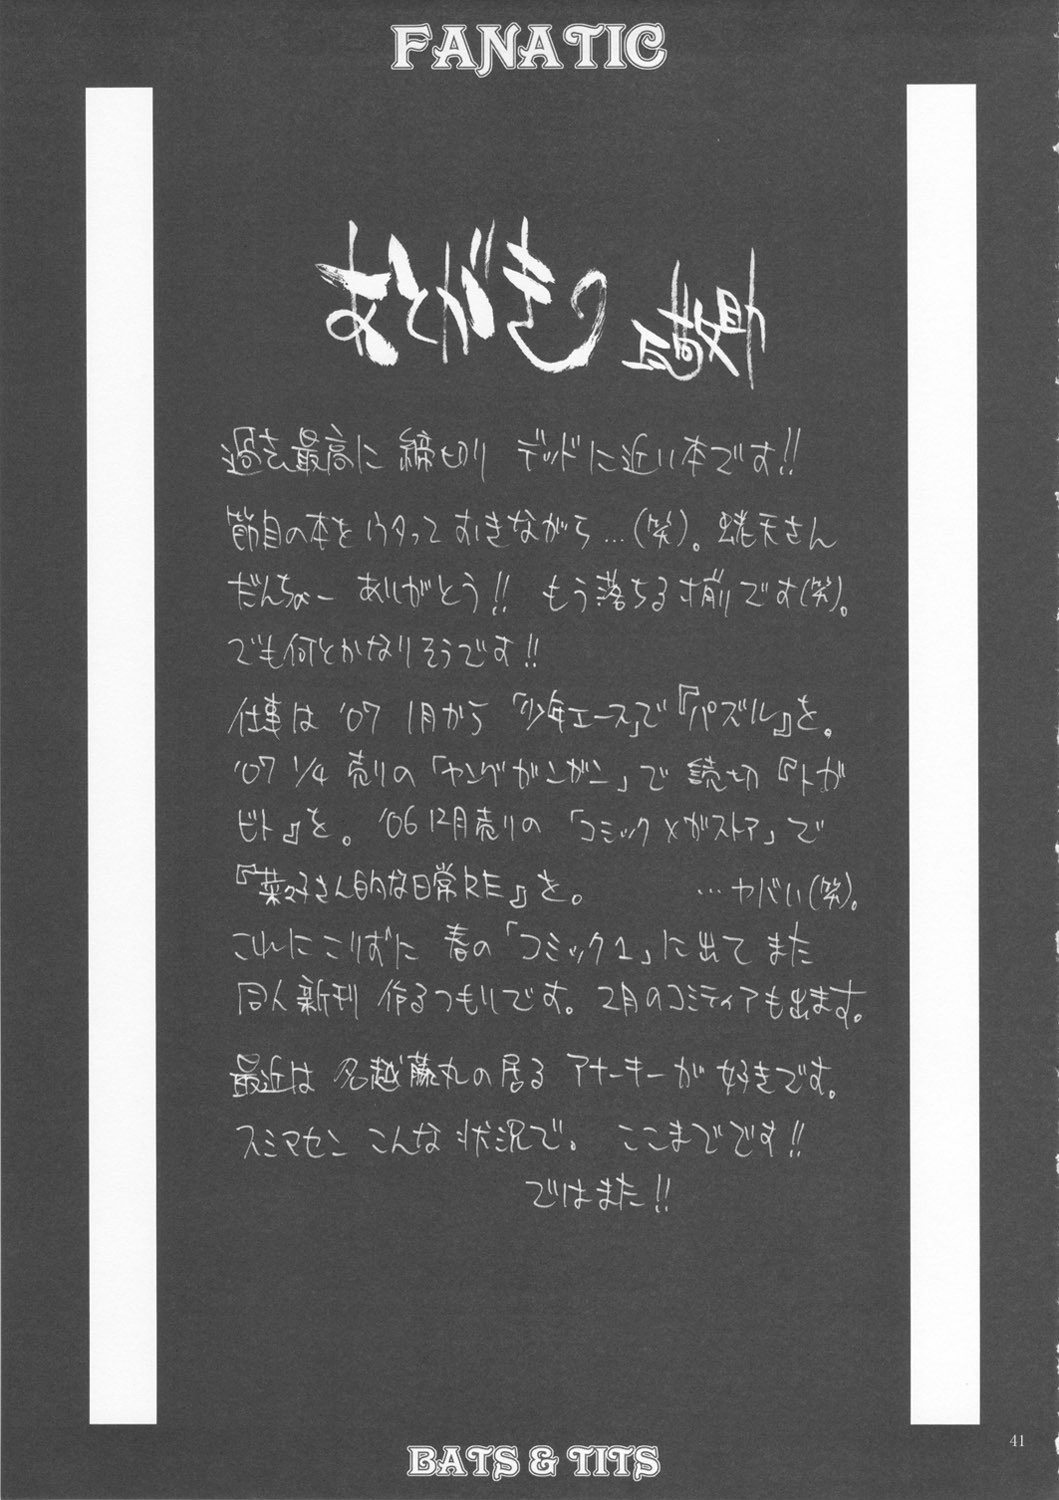 FANATIC
あとがき 瓦敬助
過去最高に 締切り デッドに近い本です!!
節目の本を ウタって おきながら…(笑)。 蜷天さん
だんちょー ありがとう!! もう落ちる寸前です(笑)。
でも何とかなりそうです!!
仕事は '07 1月から 「少年エース」で『パズル』を。
'07 1/4 売りの 「ヤングガンガン」で 読切 『トガ
ビト』を。 '06 12月売りの 「コミック×ガストア」で
『菜々子さん的な日常RE』を。 …ヤバい(笑)。
これにこりずに 春の 「コミック1」に出て また
同人新刊 作るつもりです。 2月のコミティアも出ます。
最近は 名越藤丸の居る アナーキーが 好きです。
スミマセン こんな 状況で。 ここまでです!!
ではまた!!
41
BATS & TITS